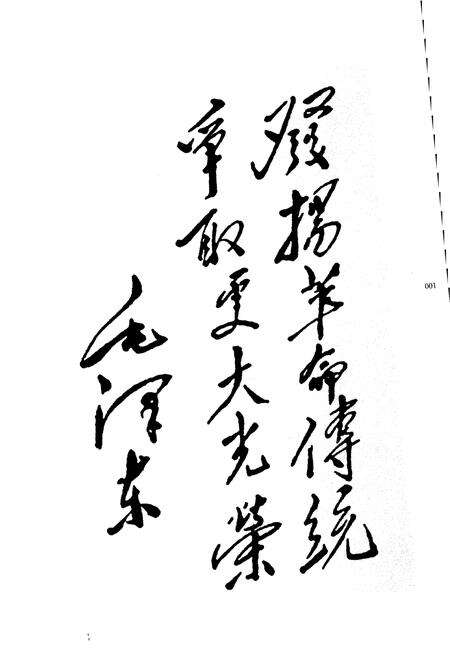 發揚革命傳統
爭取更大光榮
毛澤东
001